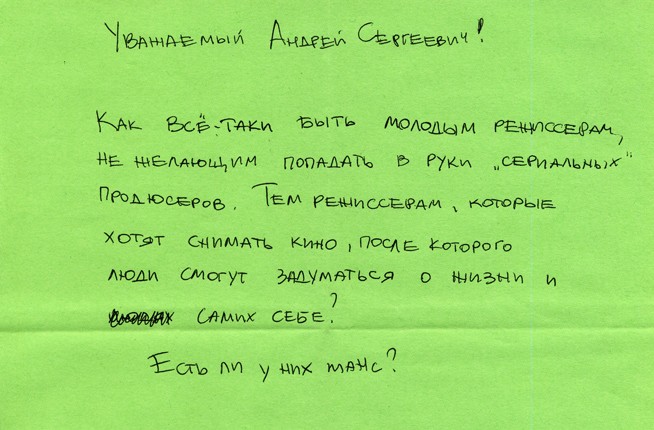 Уважаемый Андрей Сергеевич!
Как всё-таки быть молодым режиссерам,
не желающим попадать в руки „сериальных"
продюсеров. Тем режиссерам, которые
хотят снимать кино, после которого
люди смогут задуматься о жизни и
самих себе?
Есть ли у них шанс?